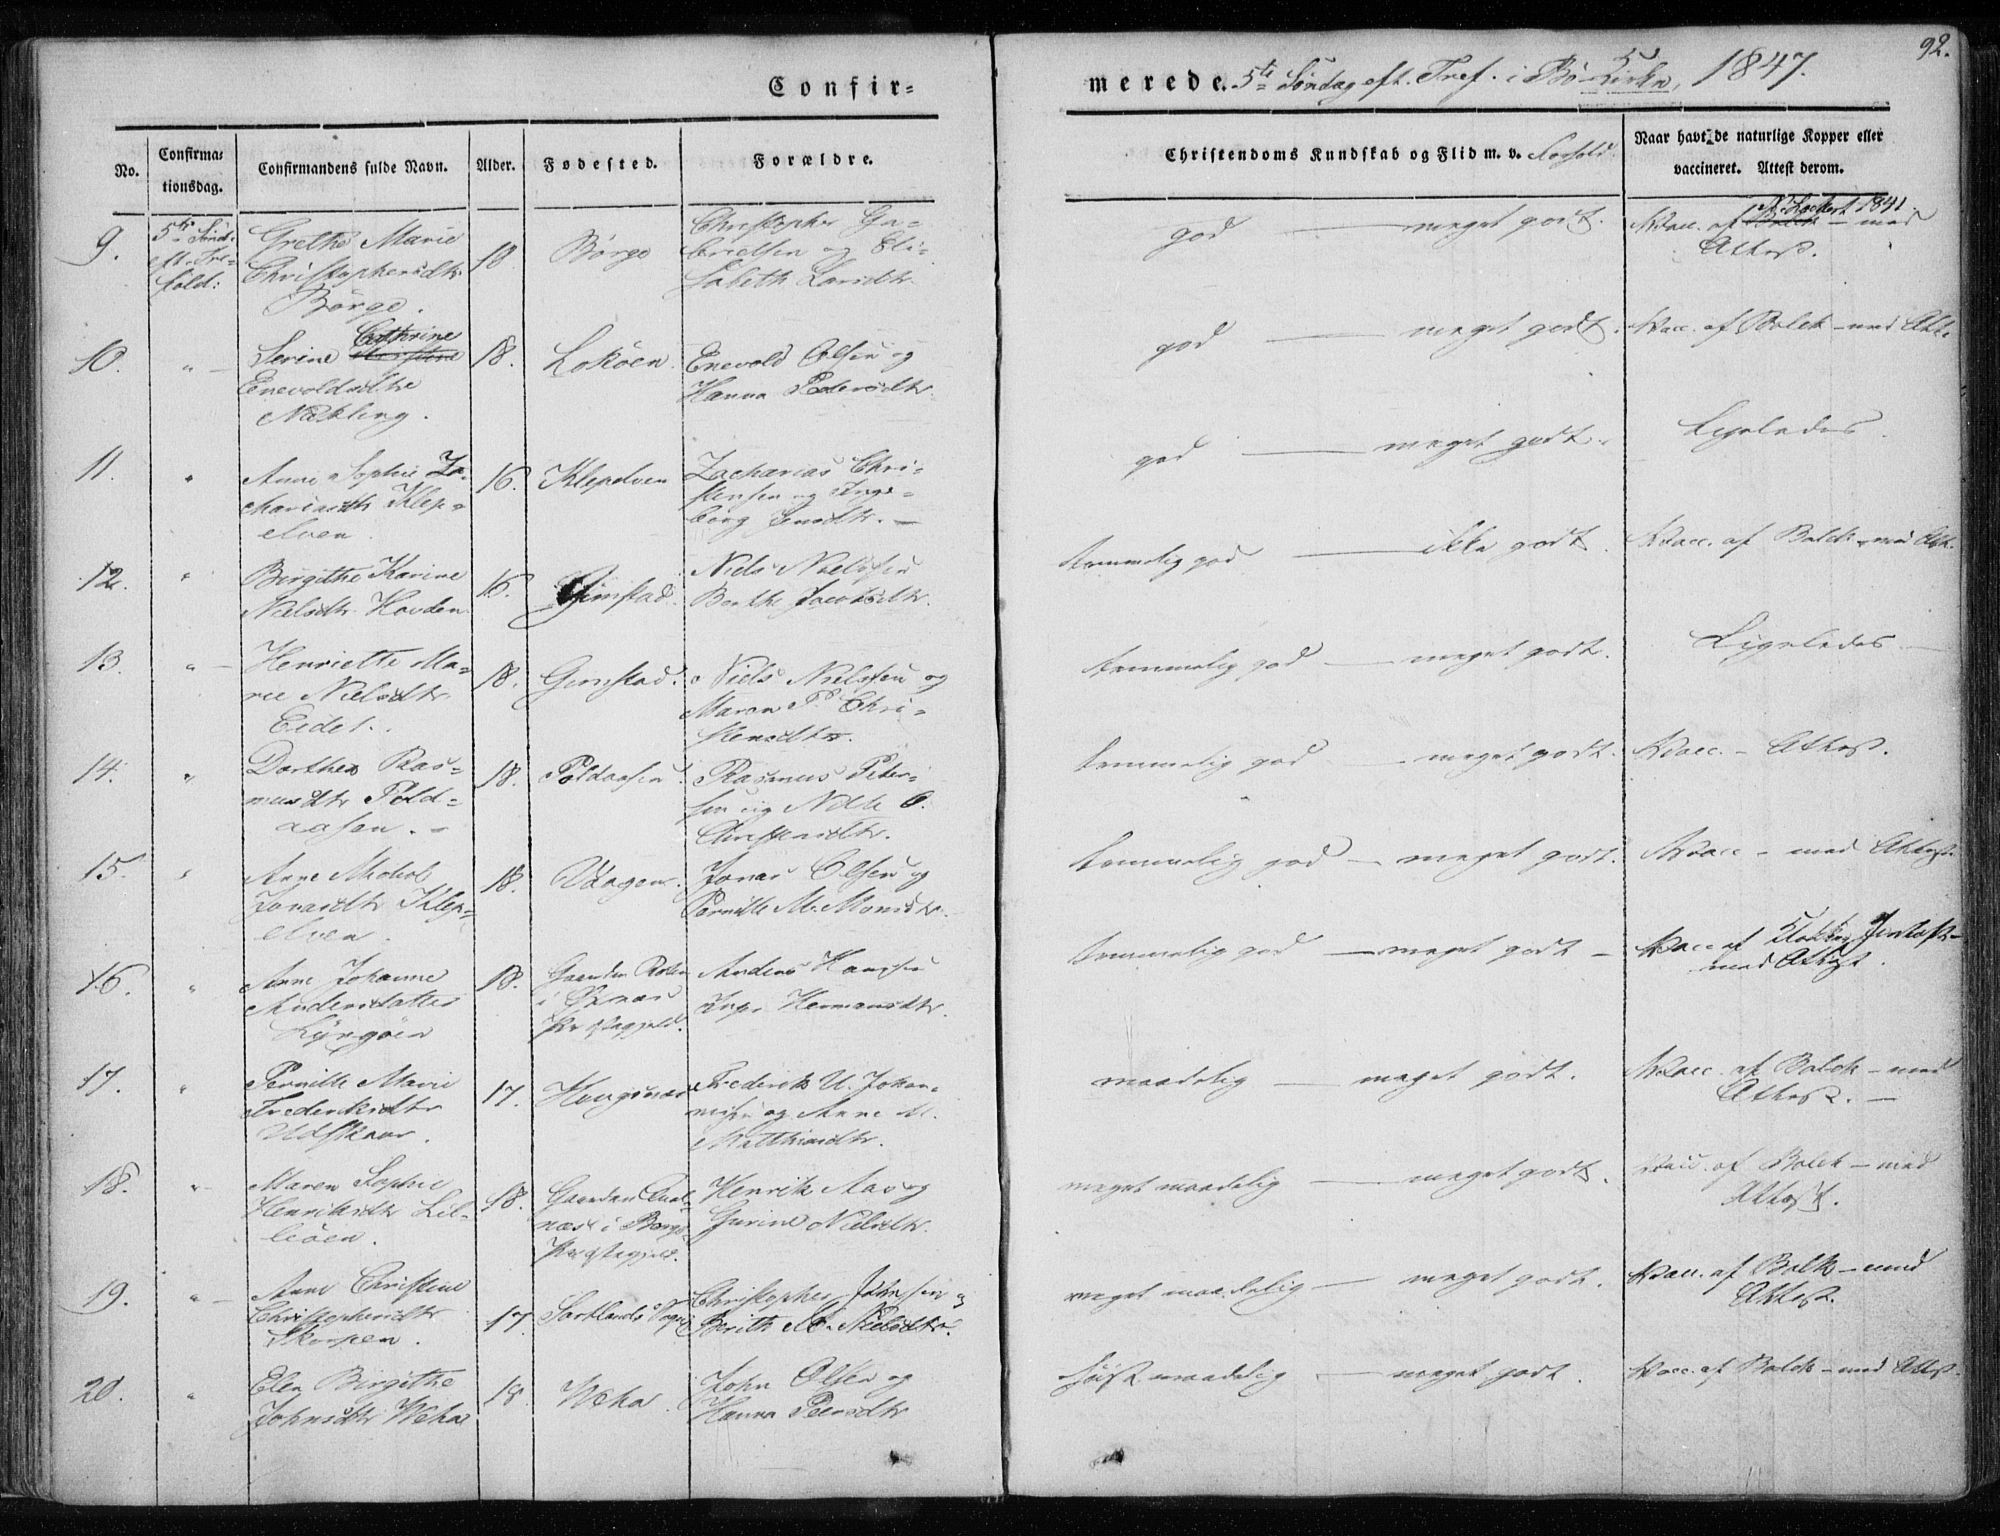 92.
Confir-
merede. 5te Søndag eft. Tref. i Bø Kirke, 1847.
No.
Confirma-
tionsdag.
Confirmandens fulde Navn.
Alder.
Fødested.
Forældre.
Christendoms Kundskab og Flid m. v. Forhold.
Naar havt de naturlige Kopper eller
vaccineret. Attest derom.
9.
5te Sønd.
eft. Tre-
fold:
Grethe Marie
Christophersdtr
Børge.
18
Børge
Christopher Ga-
brielsen og Eli-
sabeth Larsdtr.
god — meget godt.
Vacc. af 1841 - med
Attest.
10.
"
Serine Cathrine
Enevoldsdtr
Nykling.
18.
Lokøen
Enevold Olsen og
Hanna Pedersdtr.
god — meget godt.
Vacc. af Balck - med Att.
11.
"
Anne Sophie Za-
chariasdtr Klep-
elven.
16.
Klepelven
Zacharias Chri-
stensen og Inge-
borg Jensdtr. —
god — meget godt.
Ligeledes.
12.
"
Birgithe Karine
Nielsdtr Hovden
16.
Gimstad.
Niels Nielsen
Berthe Jacobsdtr.
temmelig god — ikke godt.
Vacc. af Balck - med Att.
13.
"
Henriette Ma-
rie Nielsdtr
Eidet.
18.
Gimstad.
Niels Nielsen og
Maren P. Chri-
stensdtr.
temmelig god — meget godt.
Ligeledes —
14.
"
Dorthea Ras-
musdtr Pold-
aasen. -
18.
Poldaasen.
Rasmus Peter-
sen og O.
Christensdtr.
temmelig god — meget godt.
Vacc. - Attest.
15.
"
Anne
Jonasdtr Klep-
elven.
18.
Vaagen.
Jonas Olsen og
Pernille M. Monsdtr.
temmelig god — meget godt.
Vacc - med Attest.
16.
"
Anne Johanne
Andersdatter
Lyngøen
18.
Gaarden
i Øxnæs
Præstegjeld.
Anders Hansen
Inger Hermansdtr.
temmelig god — meget godt —
Vacc af Klokker Jentoft -
med Attest.
17.
"
Pernille Marie
Frederiksdtr
Udskaar.
17.
Haugsnæs
Frederik U. Johan-
nesen og Anne M.
Matthiasdtr.
maadelig — meget godt.
Vacc. af Balck - med
Attest. —
18.
"
Maren Sophie
Henriksdtr Lil-
leøen.
18.
Gaarden
næs i Borge
Præstegjeld.
Henrik Aas og
Gurine Nielsdtr.
meget maadelig — meget godt.
Vacc. af Balck - med
Attest.
19.
"
Anne Christine
Christophersdtr
Skorpen.
17.
Sortlands Sogn
Christopher Johnsen og
Berith M. Nielsdtr.
meget maadelig — meget godt.
Vacc. af Balck - med
Attest.
20.
"
Elen Birgithe
Johnsdtr Weha
18.
Weha.
John Olsen og
Hanna Peersdtr
høist maadelig — meget godt.
Vacc. af Balck - med Attest.